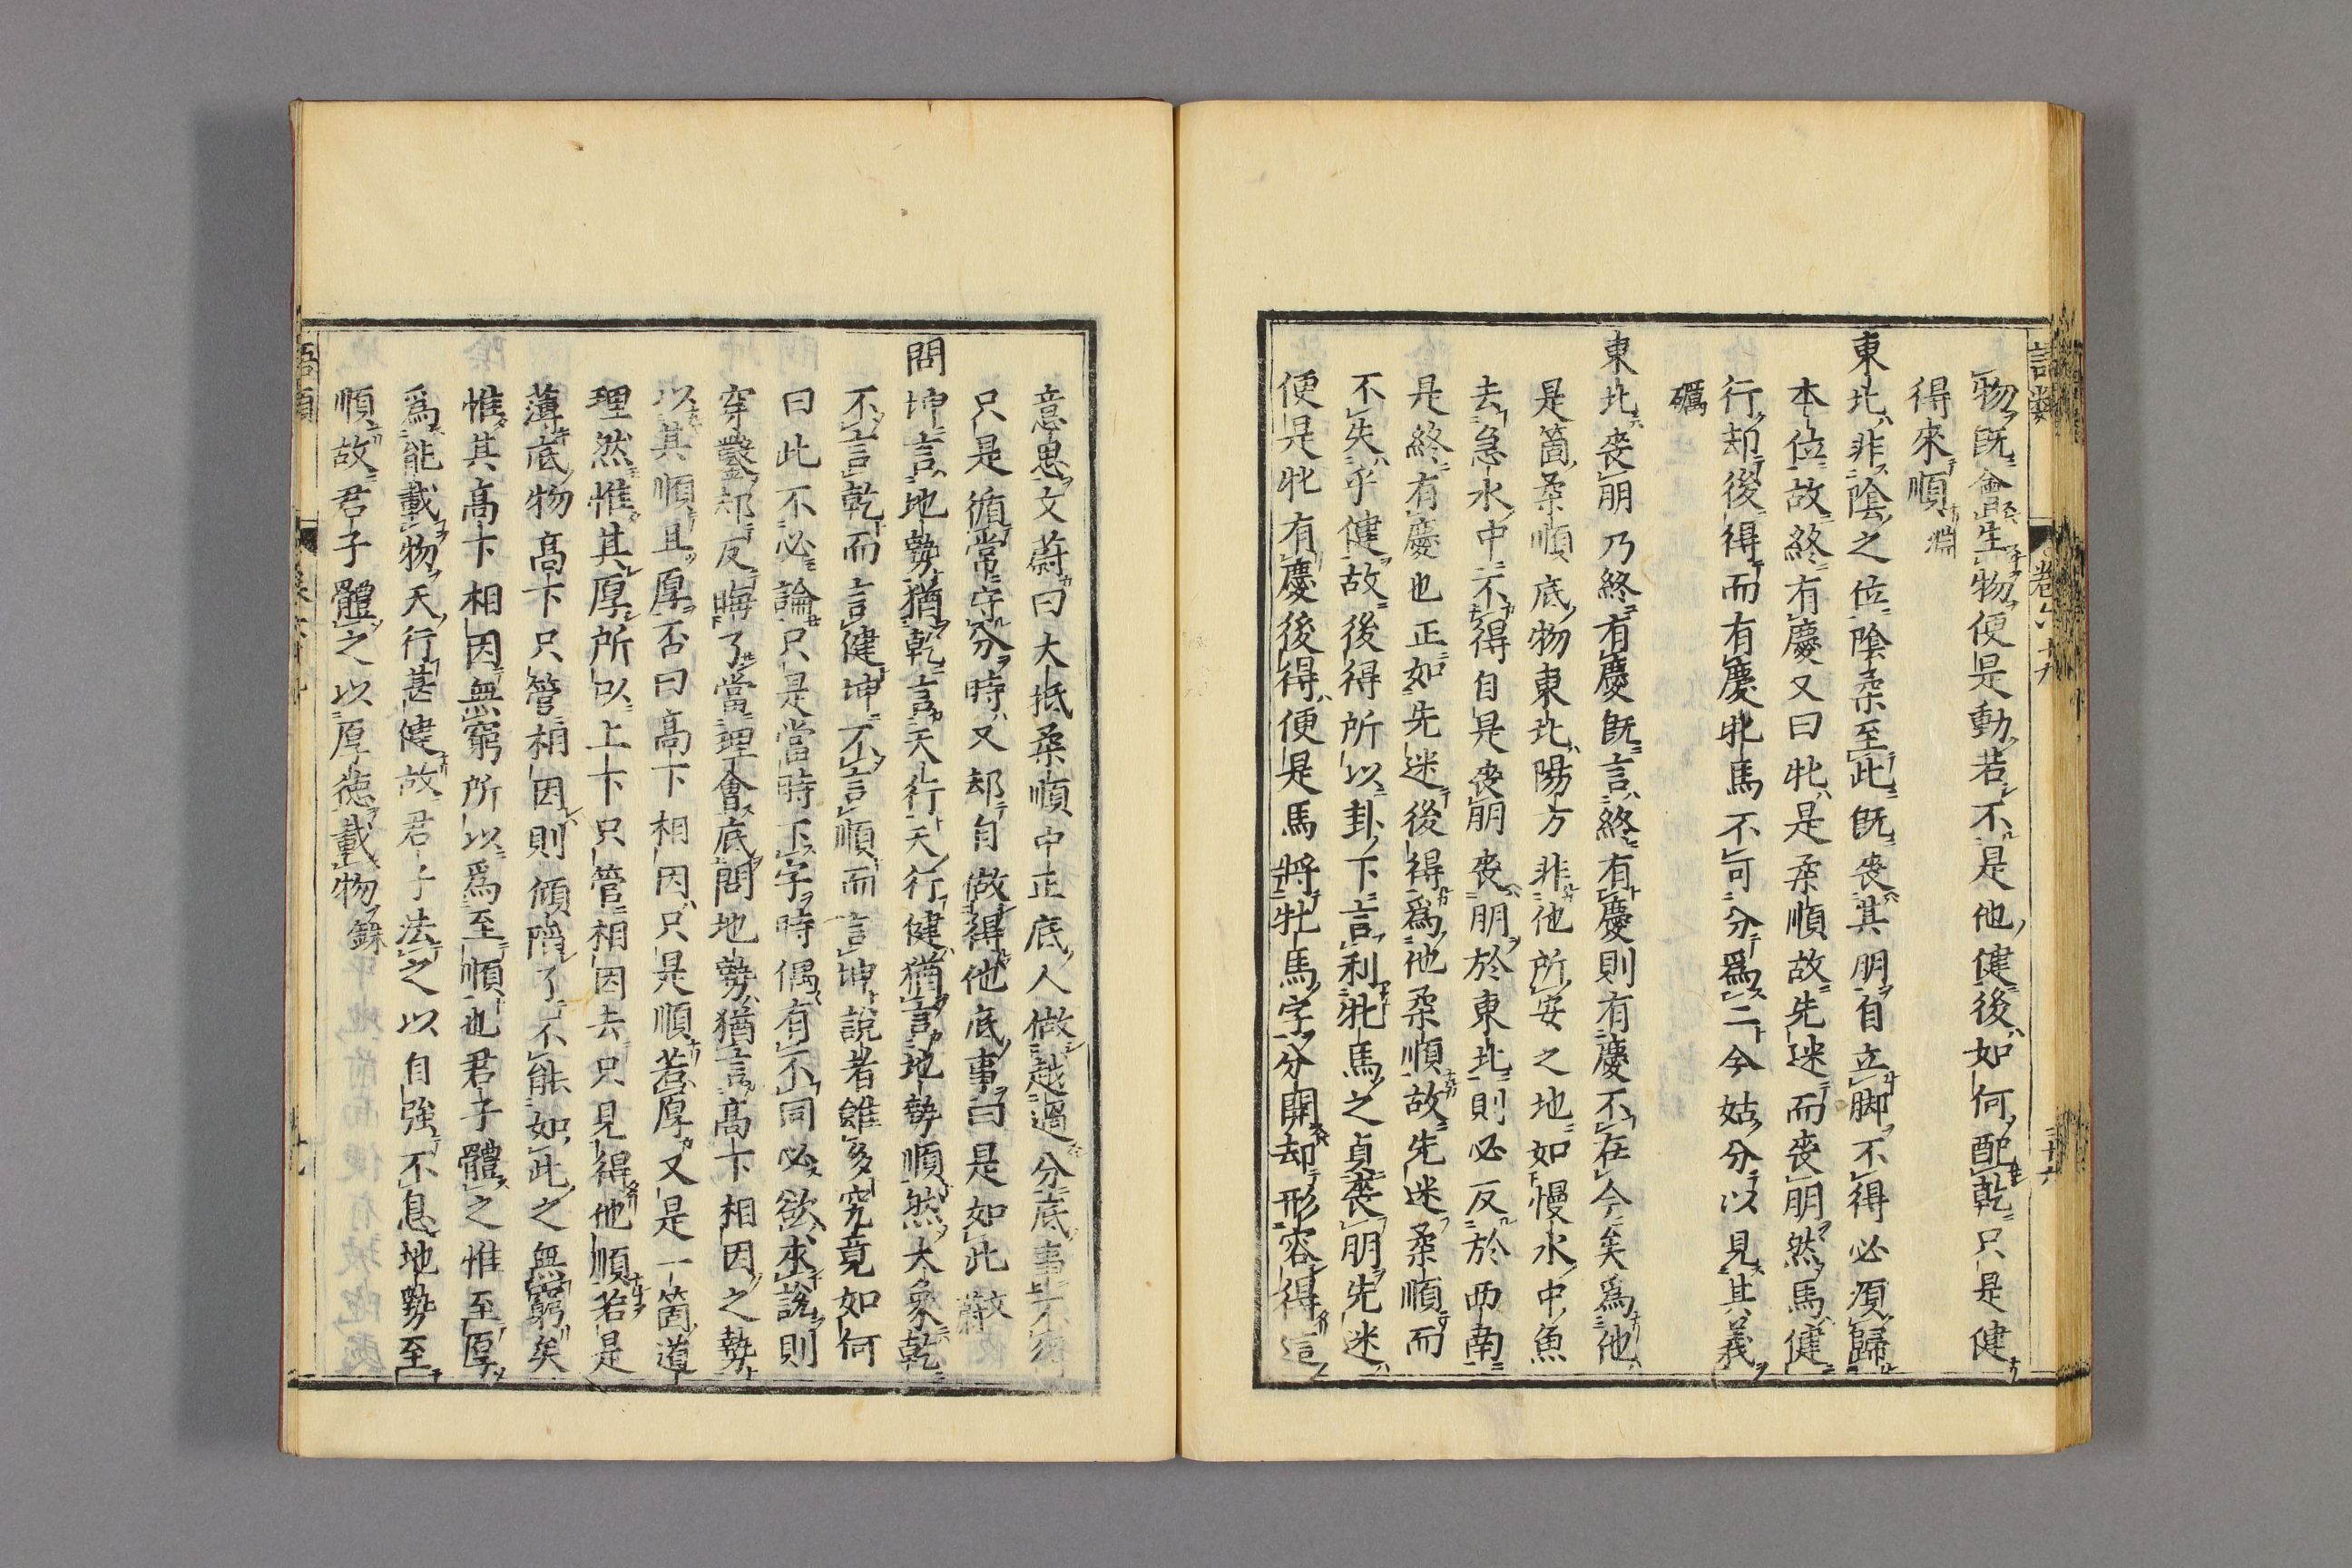 語類 卷六十九 二十六
物既會生物便是動若不是他健後如何配乾只是健
得來順 淵
東北非陰之位陰柔至此既喪其朋自立脚不得必須歸
本位故終有慶又曰牝是柔順故先迷而喪朋然馬健
行却後得而有慶牝馬不可分爲二今姑分以見其義
礪
東北喪朋乃終有慶既言終有慶則有慶不在今矣爲他
是箇柔順底物東北陽方非他所安之地如慢水中魚
去急水中不得自是喪朋喪朋於東北則必反於西南
是終有慶也正如先迷後得爲他柔順故先迷柔順而
不失乎健故後得所以卦下言利牝馬之貞喪朋先迷
便是牝有慶後得便是馬將牝馬字分開却形容得這
意思文蔚曰大抵柔順中正底人做越過分底事不得
只是循常守分時又却自做得他底事曰是如此 文蔚
問坤言地勢猶乾言天行天行健猶言地勢順然大象乾
不言乾而言健坤不言順而言坤說者雖多究竟如何
曰此不必論只是當時下字時偶有不同必欲求說則
穿鑿却反晦了當理會底問地勢猶言高下相因之勢
以其順且厚否曰高下相因只是順若厚又是一箇道
理然惟其厚所以上下只管相因去只見得他順若是
薄底物高下只管相因則傾陷了不能如此之無窮矣
惟其高下相因無窮所以爲至順也君子體之惟至厚
爲能載物天行甚健故君子法之以自強不息地勢至
順故君子體之以厚德載物 銖
語類